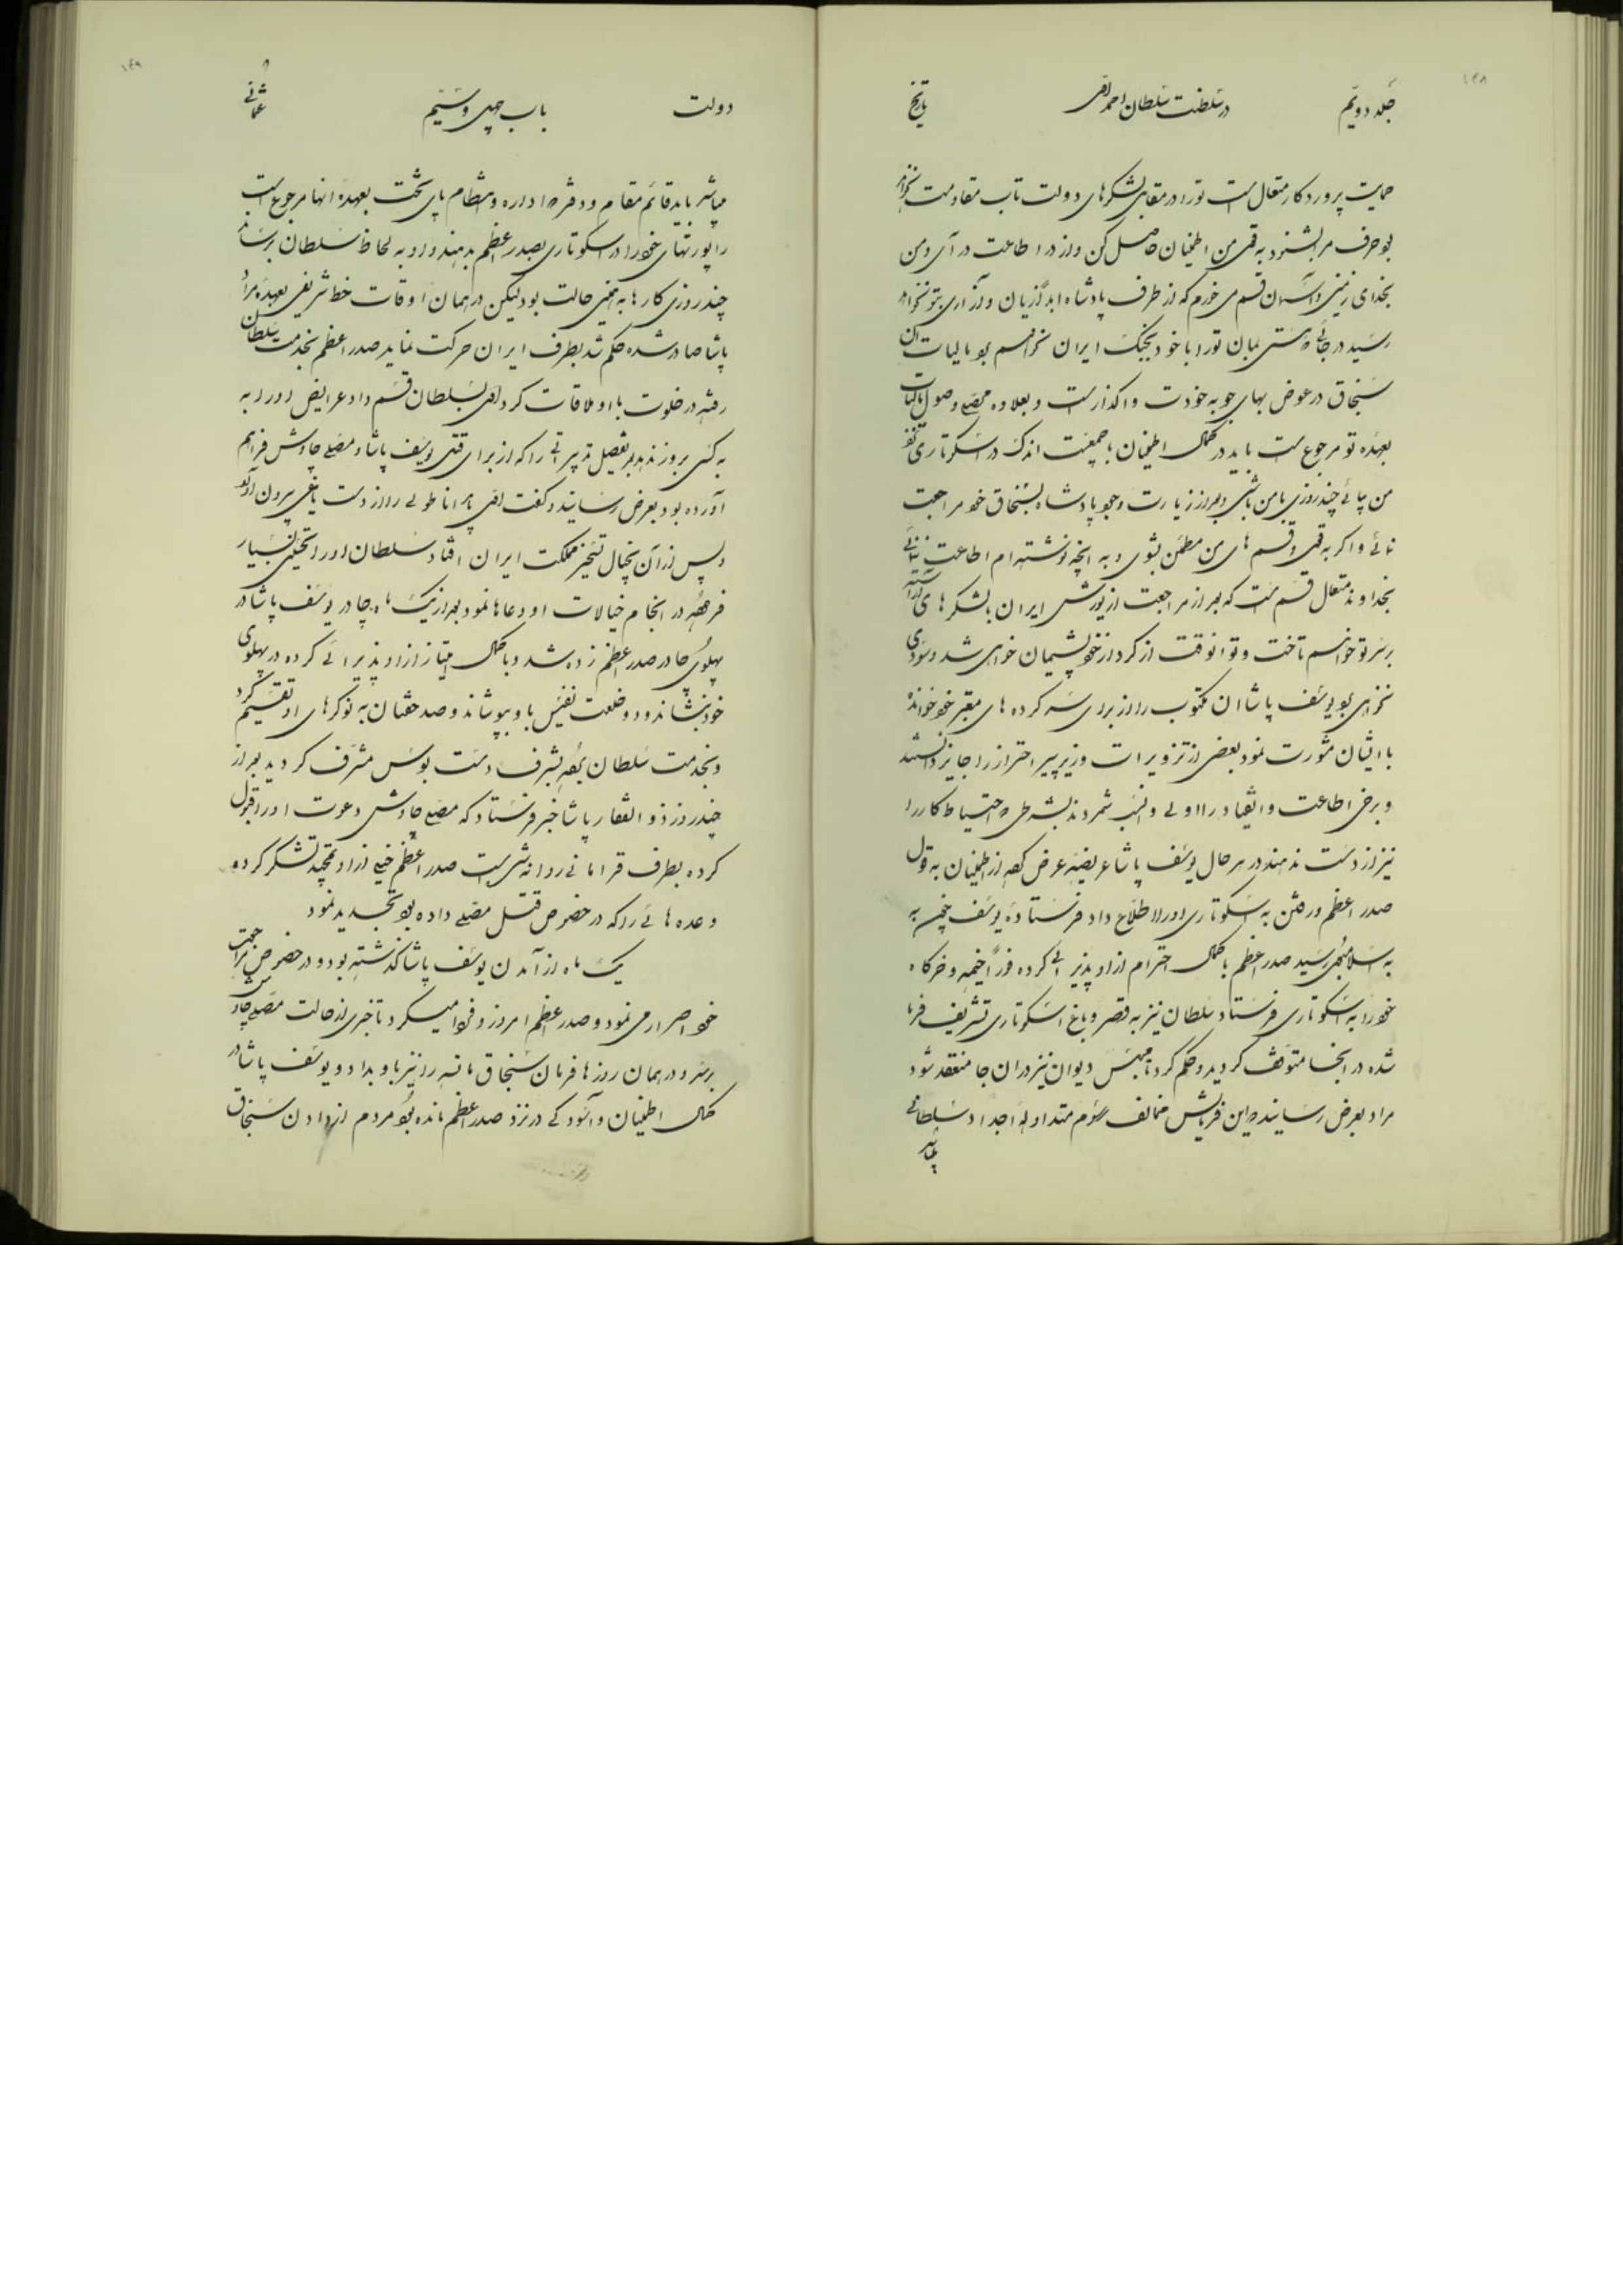 ۱۴۸
جلد دویم
در سلطنت سلطان احمد اول
تاریخ
حمایت پروردگار متعال است تو را در مقابل لشکرهای دولت تاب مقاومت نخواهد
بود حرف مرا بشنو به قول من اطمینان حاصل کن و از در اطاعت درآی و من
بخدای زمین و آسمان قسم می خورم که از طرف پادشاه ابداً زیان و آزاری بتو نخواهد
رسید در جائی که هستی بمان تو را با خود بجنگ ایران نخواهم بود مالیات آن
سنجاق در عوض بهای جو به خودت واگذار است و بعلاوه وصول مالیات
بعهده تو مرجوع است باید در کمال اطمینان با جمعیت اندک در اسکوتاری نزد
من بیائی چند روزی با من باشی و بعد از زیارت پادشاه بسنجاق خود مراجعت
نمائی و اگر به قول و قسم های من مطمئن نشوی و به آنچه نوشته ام اطاعت نمائی
بخداوند متعال قسم است که بعد از مراجعت از یورش ایران با لشکرهای آراسته
بر سر تو خواهم تاخت و تو آنوقت از کرده خود پشیمان خواهی شد و سودی
نخواهی یوسف پاشا آن مکتوب را از برای سرکرده های معتبر خود خوانده
با ایشان مشورت نمود بعضی از تزویرات وزیر پیر احتراز را جایز دانستند
و برخی اطاعت و انقیاد را اولی و انسب شمردند بشرطی که احتیاط کار را
نیز از دست ندهند در هر حال یوسف پاشا عریضه عرض کرده از اطمینان به قول
صدر اعظم و رفتن به اسکوتاری او را اطلاع داد فرستاده یوسف به
به اسلامبول رسید صدر اعظم با کمال احترام از او پذیرائی کرده فوراً خیمه و خرگاه
خود را به اسکوتاری فرستاد سلطان نیز به قصر و باغ اسکوتاری تشریف فرما
شده در آنجا متوقف گردید و حکم کرد تا مجلس دیوان نیز در آن جا منعقد شود
مراد بعرض رسانید که این فرمایش مخالف رسوم متداوله اجداد سلطانی
۱۴۹
دولت
باب چهل و سیم
عثمانی
میباشد باید قائم مقام و دفتر اداره و انتظام پای تخت بعهده آنها مرجوع است
راپورتهای خود را در اسکوتاری بصدر اعظم بدهند و او به لحاظ سلطان برساند
چند روزی کارها به همین حالت بود لیکن در همان اوقات خط شریفی بعهده مراد
پاشا صادر شده حکم شد بطرف ایران حرکت نماید صدر اعظم بخدمت سلطان
رفته در خلوت با او ملاقات کرد اول بسلطان قسم داد عرایض او را به
به کسی بروز ندهد بعد تفصیل تدبیراتی را که از برای قتل یوسف پاشا و مصلی چاوش فراهم
آورده بود بعرض رسانید و گفت اول باید اناطولی را از دست یاغی بیرون آورد
و پس از آن بخیال تسخیر مملکت ایران افتاد سلطان او را تحسین بسیار
فرموده در انجام خیالات او دعاها نمود بعد از یک ماه چادر یوسف پاشا در
پهلوی چادر صدر اعظم زده شد و با کمال امتیاز از او پذیرائی کرده در پهلوی
خود نشاند و دو خلعت نفیس باو بپوشاند و صد خفتان به نوکرهای او تقسیم کرد
و بخدمت سلطان برده بشرف دست بوس مشرف گردید بعد از
چند روز ذوالفقار پاشا خبر فرستاد که مصلی چاوش دعوت او را قبول
کرده بطرف قرامانی روانه شده است صدر اعظم خیلی از او تمجید تشکر کرده
وعده هائی را که در خصوص قتل مصلی داده بود تجدید نمود
یک ماه از آمدن یوسف پاشا گذشته بود و در خصوص مراجعت
خود اصرار می نمود و صدر اعظم امروز و فردا میکرد تا خبری از حالت مصلی چاوش
برسد و در همان روزها فرمان سنجاق مانسه را نیز باو بداد و یوسف پاشا در
کمال اطمینان و آسودگی در نزد صدر اعظم مانده بود مردم از دادن سنجاق